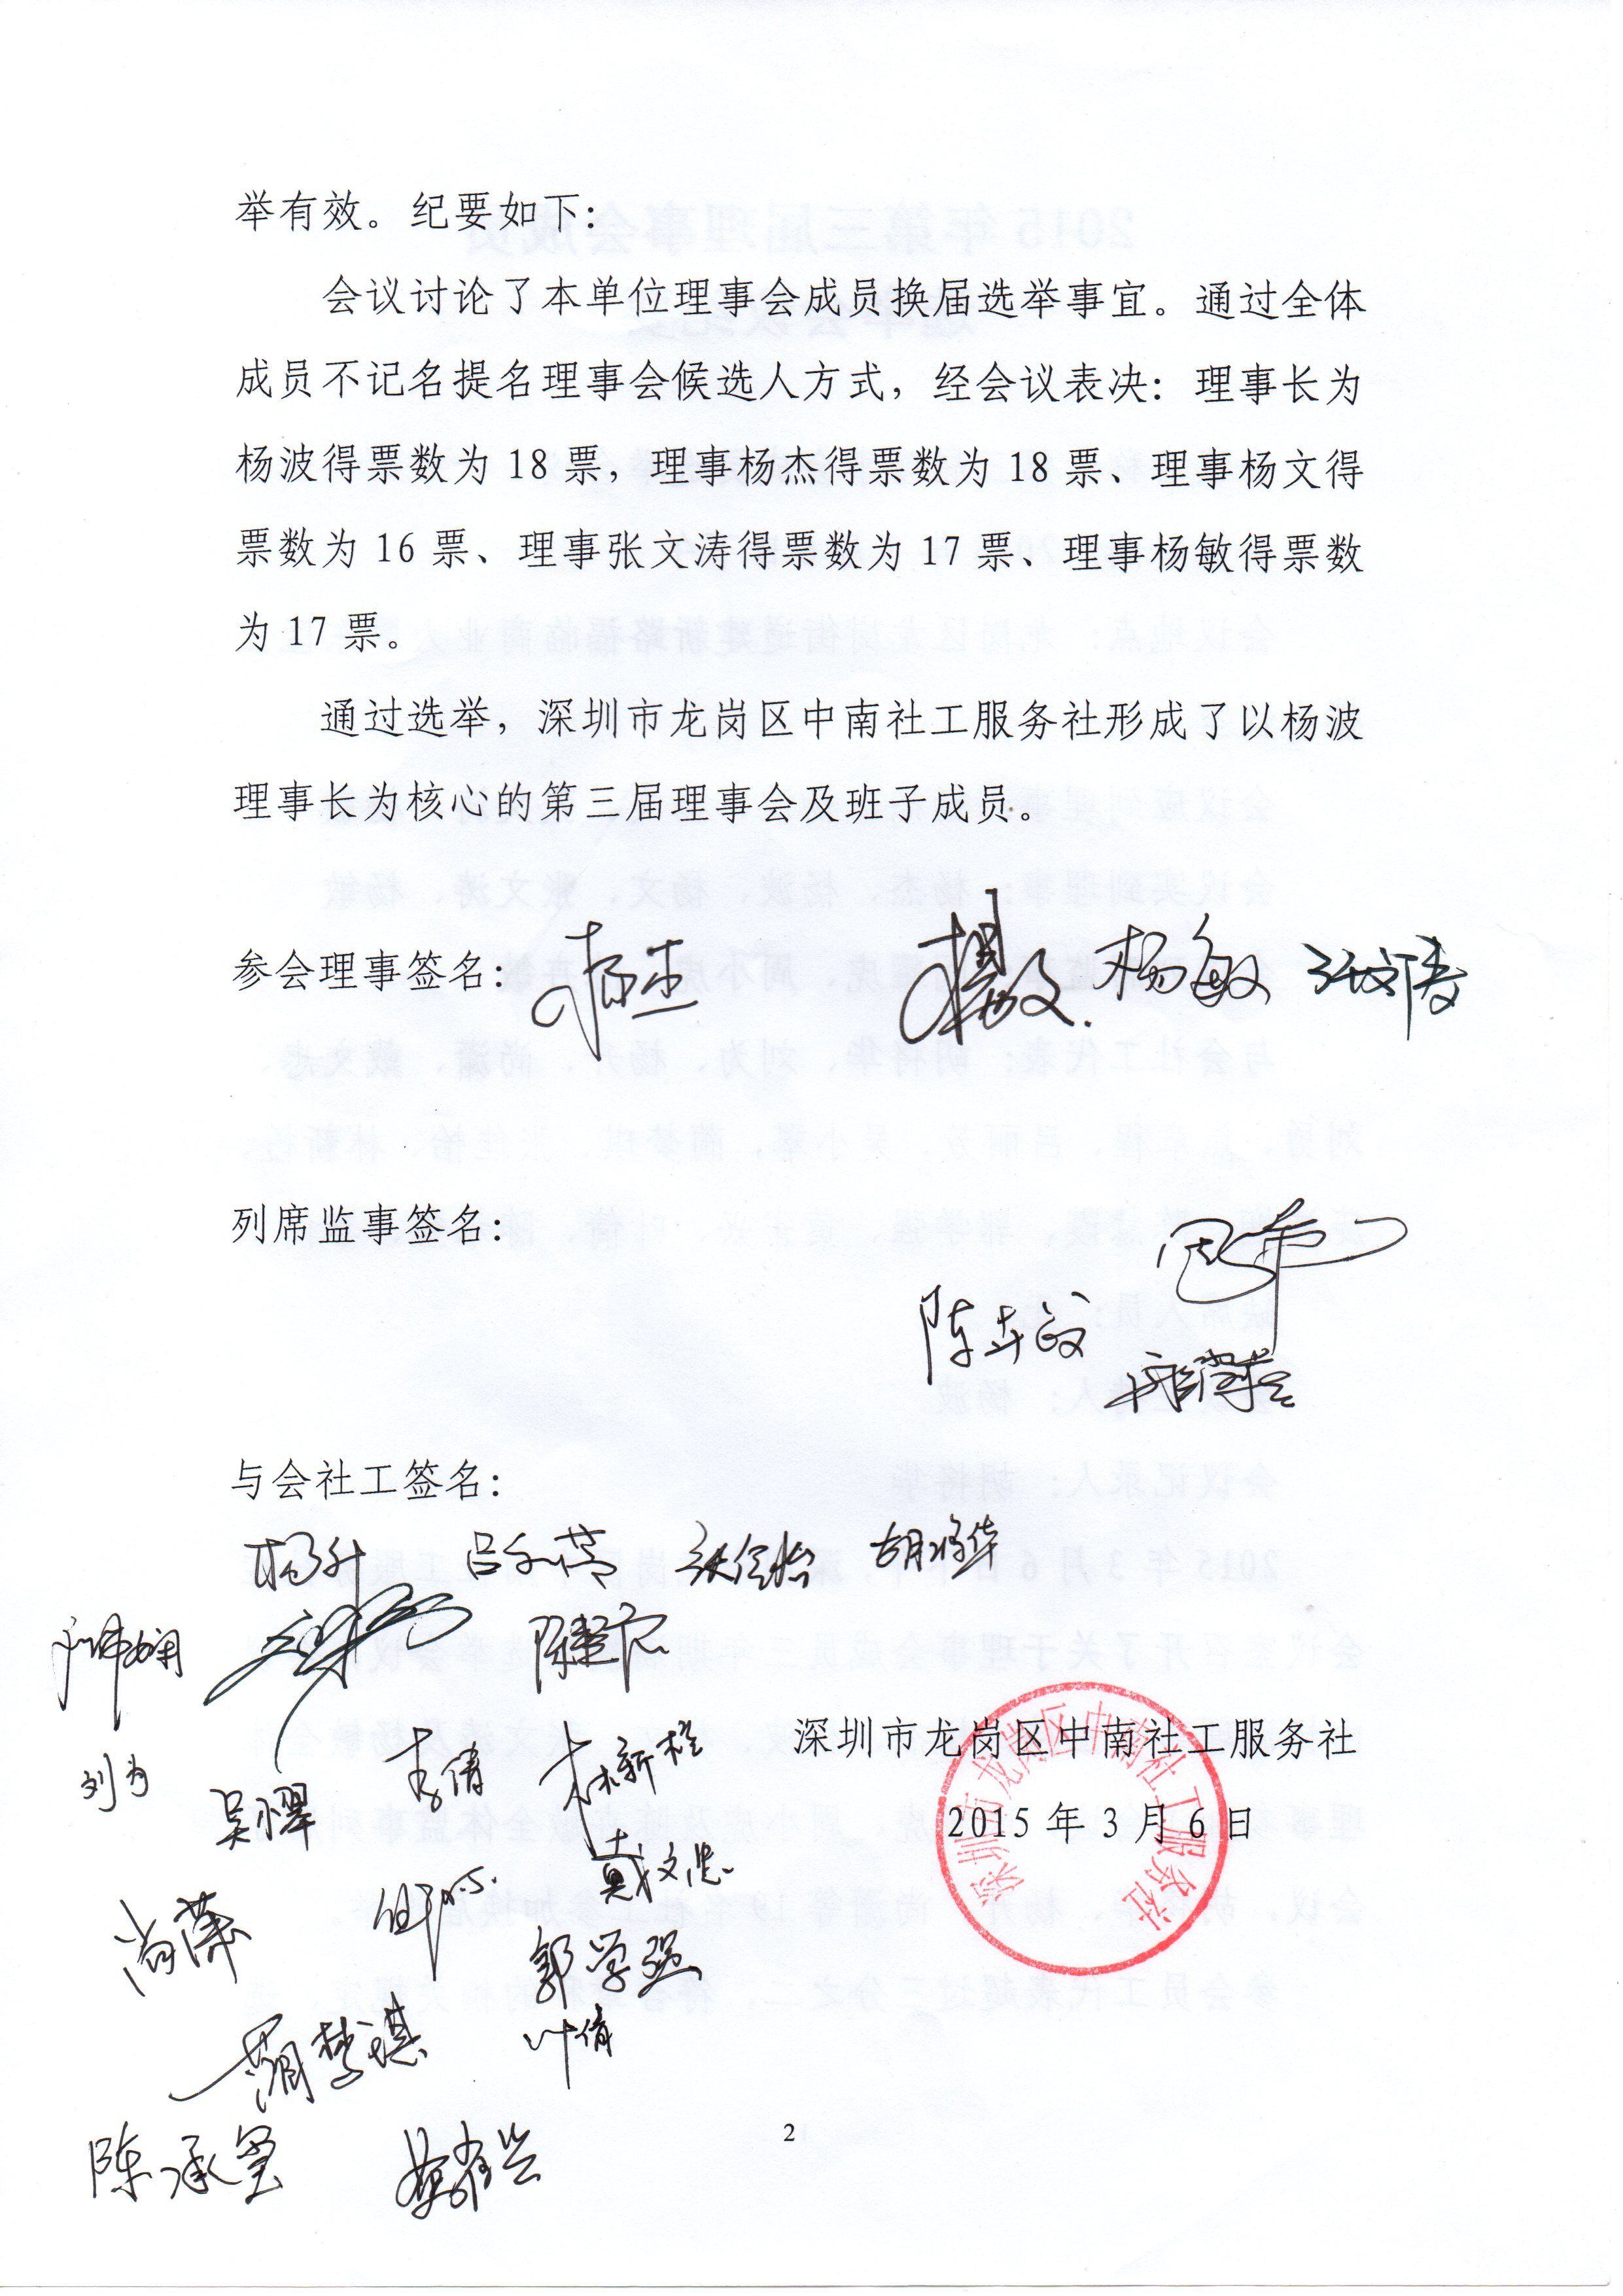 举有效。纪要如下：
会议讨论了本单位理事会成员换届选举事宜。通过全体
成员不记名提名理事会候选人方式，经会议表决：理事长为
杨波得票数为 18 票，理事杨杰得票数为 18 票、理事杨文得
票数为 16 票、理事张文涛得票数为 17 票、理事杨敏得票数
为 17 票。
通过选举，深圳市龙岗区中南社工服务社形成了以杨波
理事长为核心的第三届理事会及班子成员。
参会理事签名： 杨杰 杨文 杨敏 张文涛
列席监事签名：
陈卉敏
与会社工签名：
杨升 张佳怡 胡将华
刘为 李倩 林新榕
深圳市龙岗区中南社工服务社
2015 年 3 月 6 日
深圳市龙岗区中南社工服务社
戴文忠
尚潇
郭学强
蔺梦琪 叶倩
2